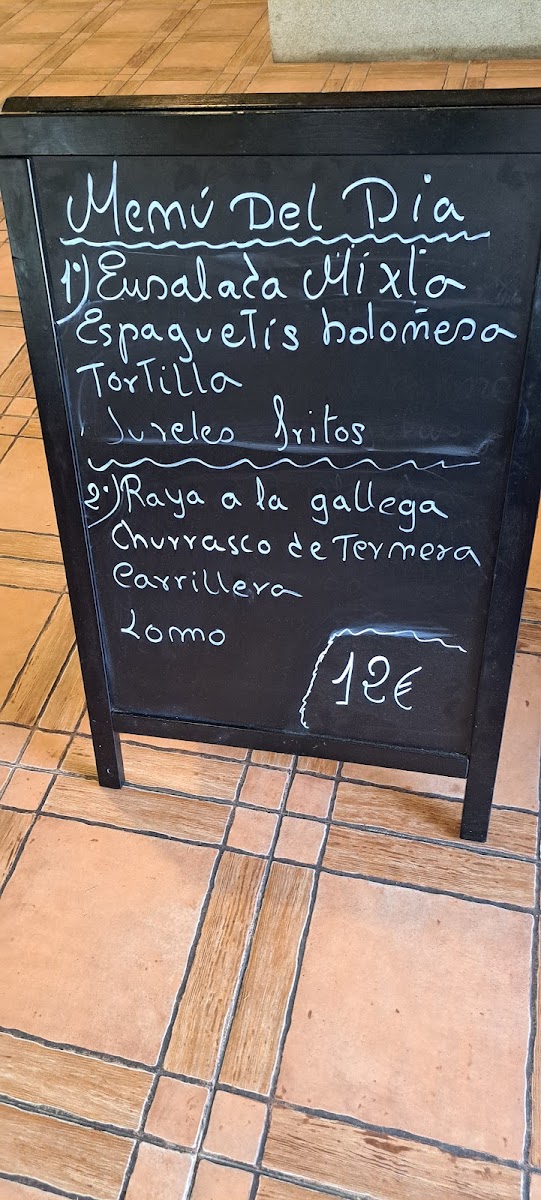 Menú Del Dia
1º) Ensalada Mixta
Espaguetis boloñesa
Tortilla
Jureles fritos
2º) Raya a la gallega
Churrasco de Ternera
Carrillera
Lomo
12€